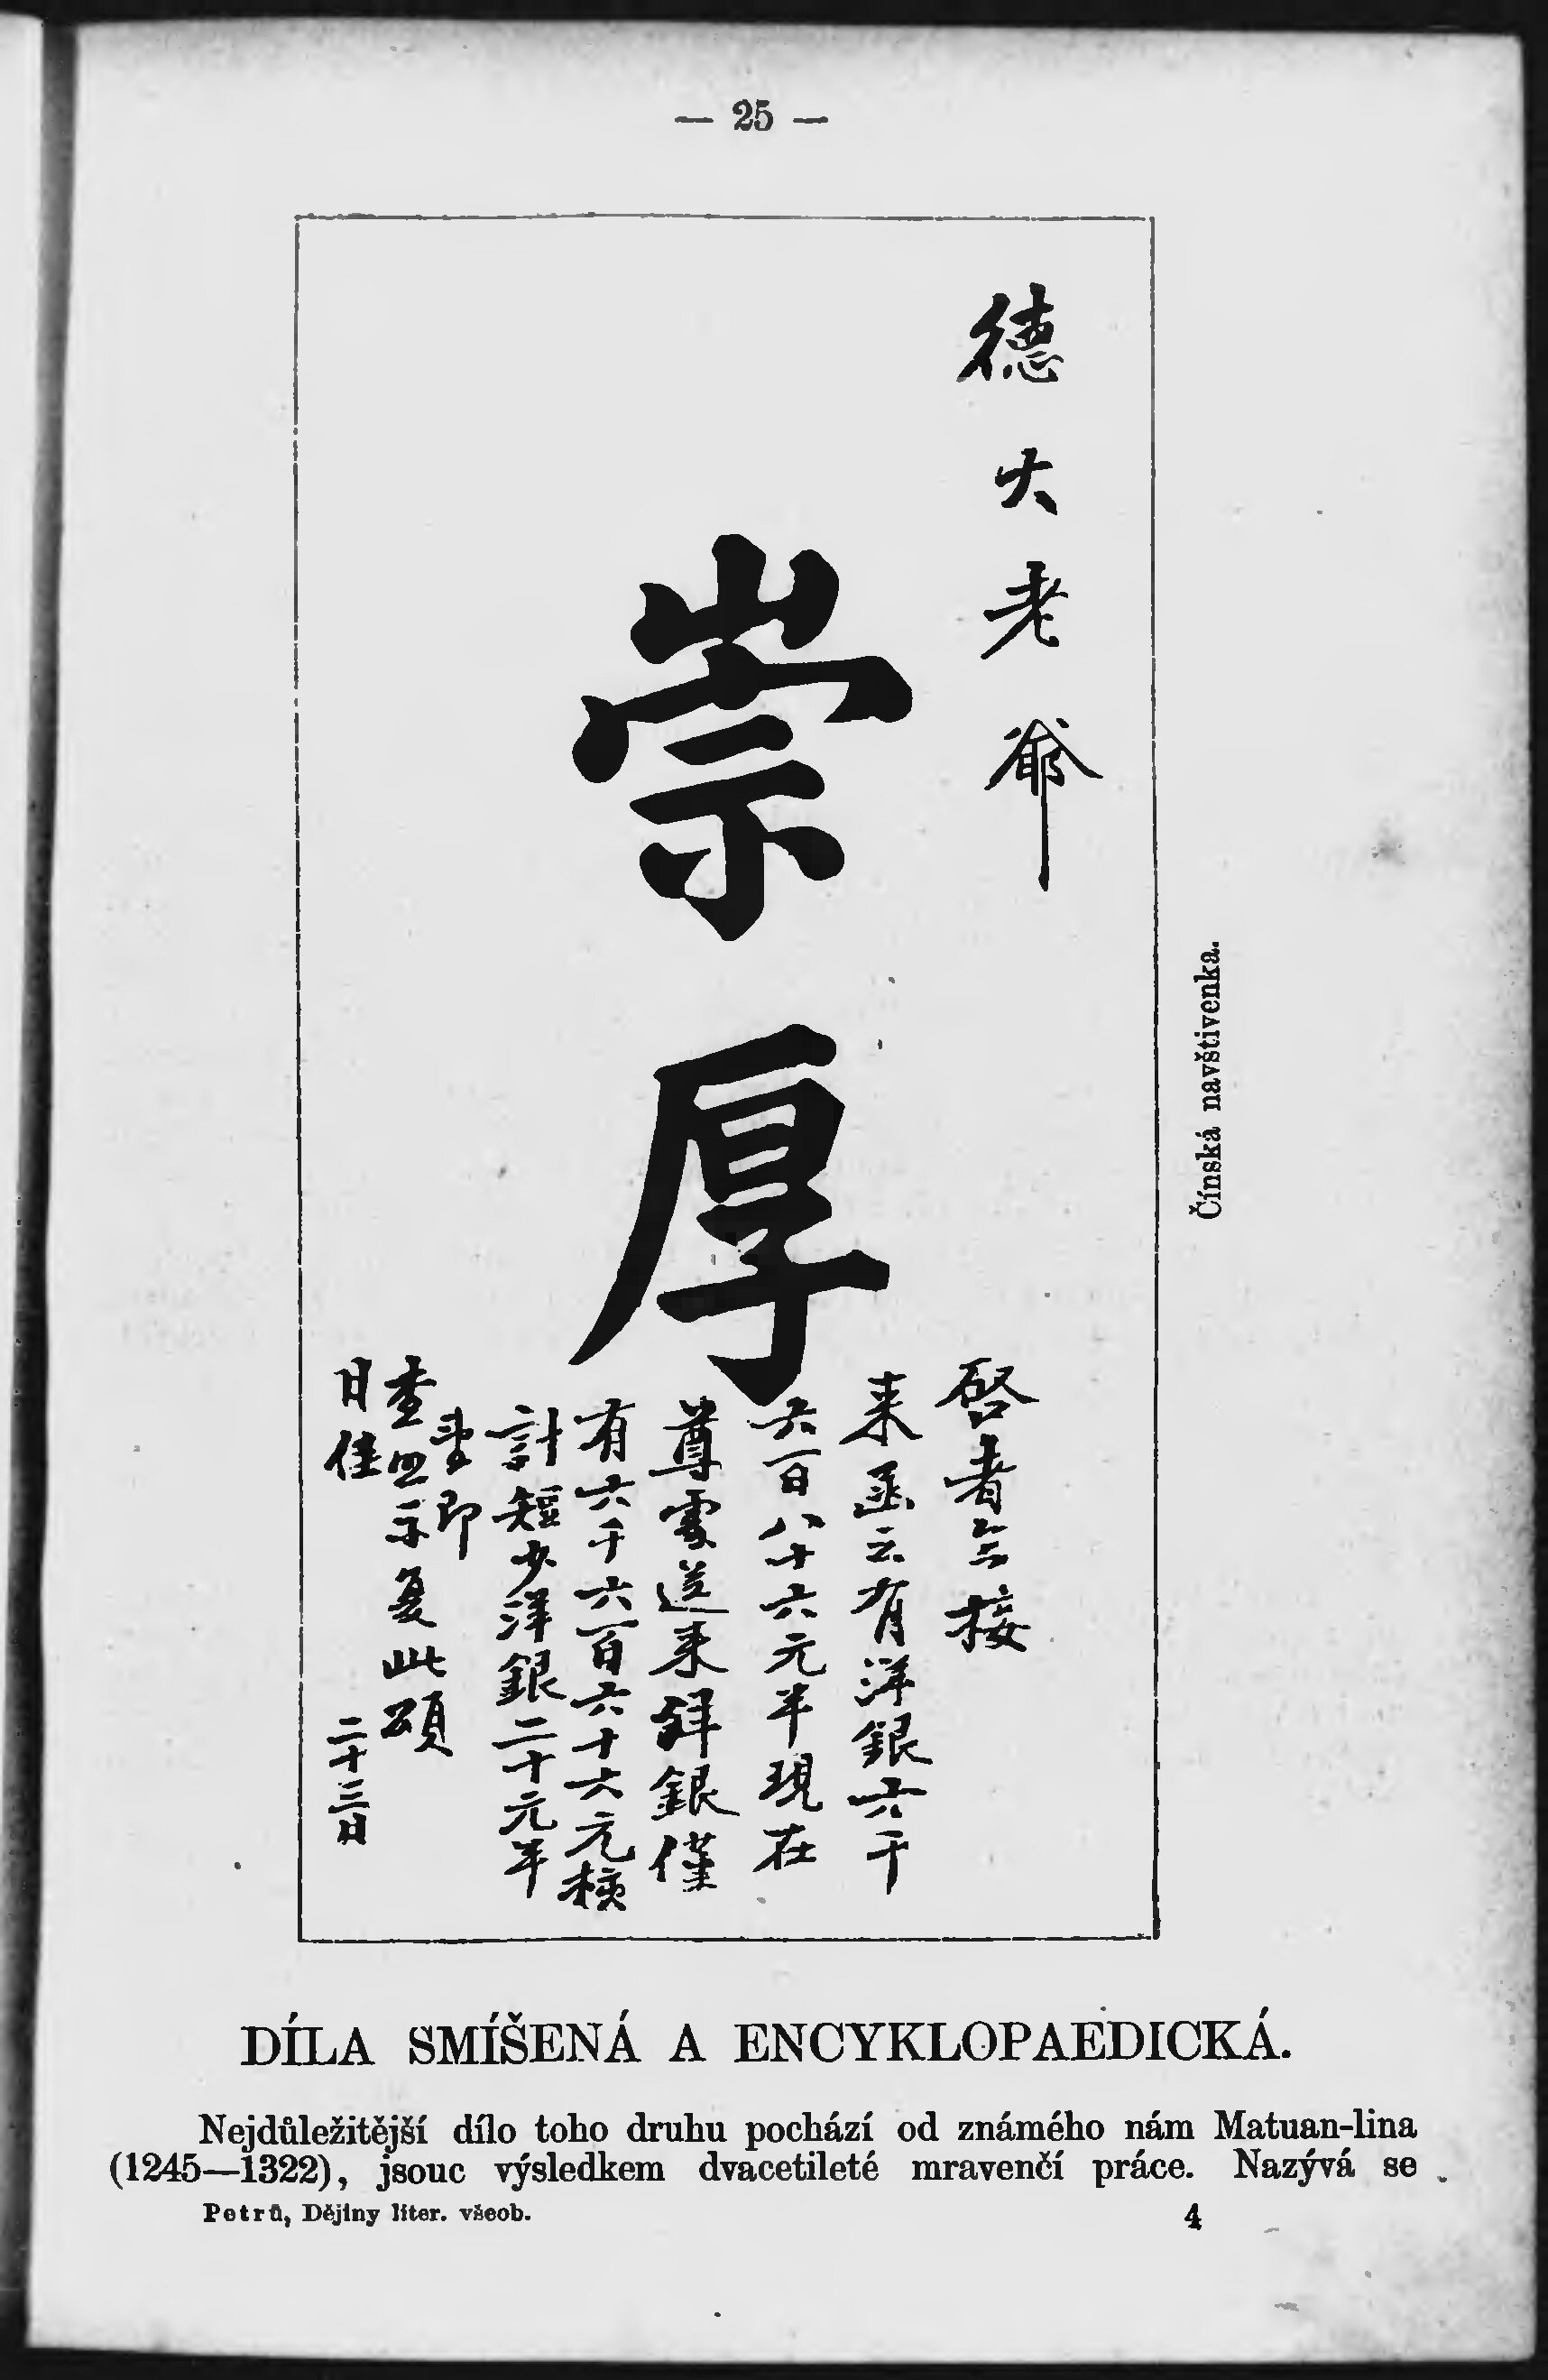 — 25 —
德大老爺
崇厚
啓者今接
来函云有洋銀六千
六百八十六元半現在
尊處送来洋銀僅
有六千六百六十六元核
計短少洋銀二十元半
即
查照示复此頌
日佳
二十三日
Čínská navštivenka.
DÍLA SMÍŠENÁ A ENCYKLOPAEDICKÁ.
Nejdůležitější dílo toho druhu pochází od známého nám Matuan-lina
(1245—1322), jsouc výsledkem dvacetileté mravenčí práce. Nazývá se
Petrů, Dějiny liter. všeob. 4